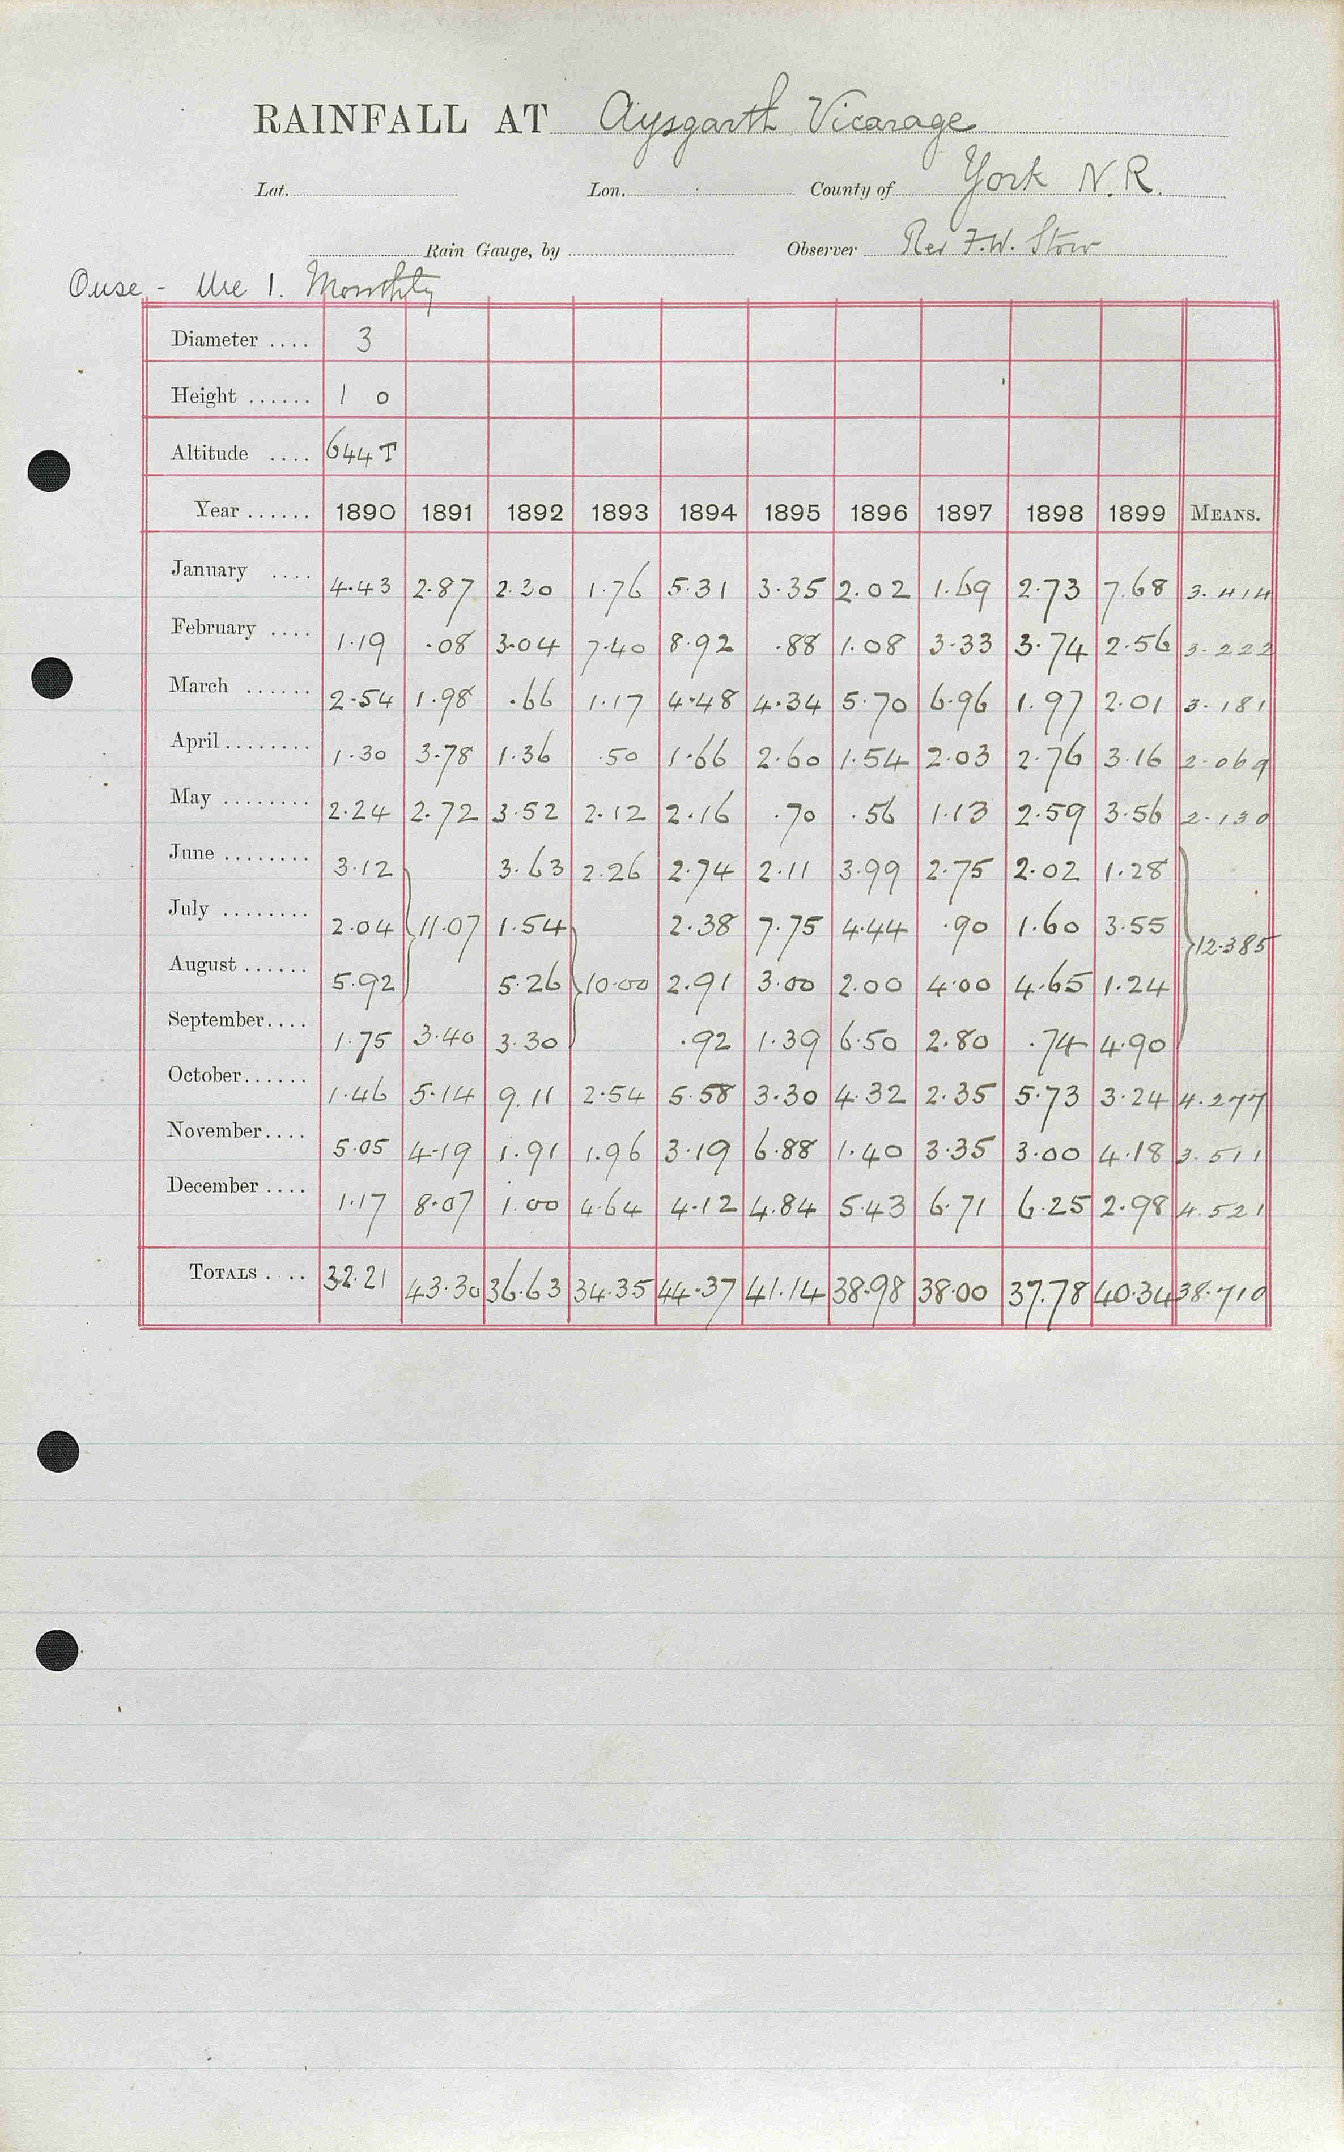 RAINFALL AT Aysgarth Vicarage
Lat. Lon. County of York N.R.
Rain Gauge, by Observer Rev F.W. Stow
Ouse - Ure 1. Monthly
Diameter .... 3
Height ...... 1 0
Altitude .... 644 T
Year ...... 1890 1891 1892 1893 1894 1895 1896 1897 1898 1899 MEANS.
January .... 4.43 2.87 2.30 1.76 5.31 3.35 2.02 1.69 2.73 7.68 3.414
February .... 1.19 .08 3.04 7.40 8.92 .88 1.08 3.33 3.74 2.56 3.222
March ...... 2.54 1.98 .66 1.17 4.48 4.34 5.70 6.96 1.97 2.01 3.181
April ........ 1.30 3.78 1.36 .50 1.66 2.60 1.54 2.03 2.76 3.16 2.069
May ........ 2.24 2.72 3.52 2.12 2.16 .70 .56 1.13 2.59 3.56 2.130
June ........ 3.12 3.63 2.26 2.74 2.11 3.99 2.75 2.02 1.28
July ........ 2.04 11.07 1.54 2.38 7.75 4.44 .90 1.60 3.55 12.385
August ...... 5.92 5.26 10.00 2.91 3.00 2.00 4.00 4.65 1.24
September .... 1.75 3.40 3.30 .92 1.39 6.50 2.80 .74 4.90
October ...... 1.46 5.14 9.11 2.54 5.58 3.30 4.32 2.35 5.73 3.24 4.277
November .... 5.05 4.19 1.91 1.96 3.19 6.88 1.40 3.35 3.00 4.18 3.511
December .... 1.17 8.07 1.00 4.64 4.12 4.84 5.43 6.71 6.25 2.98 4.521
TOTALS .... 32.21 43.30 36.63 34.35 44.37 41.14 38.98 38.00 37.78 40.34 38.710